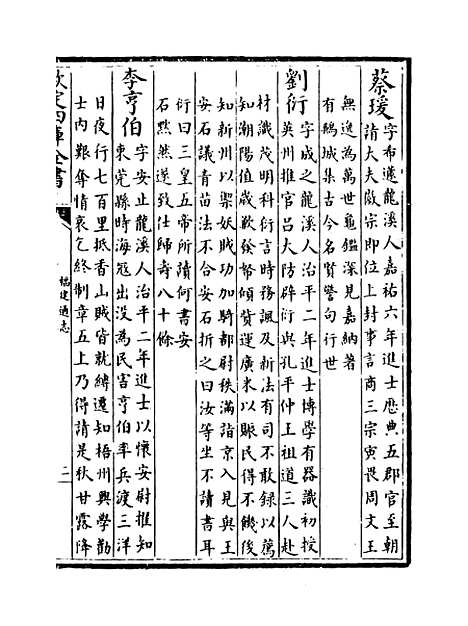 蔡瑗字布蘧龍溪人嘉祐六年進士歴典五郡官至朝
請大夫徽宗即位上封事言商三宗寅畏周文王
無逸為萬世龜鑑深見嘉納著
有鵶城集古今名賢警句行世
劉衍字成之龍溪人治平二年進士博學有器識初授
英州推官吕大防辟衍與孔平仲王祖道三人赴
材識茂明科衍言時務諷及新法有司不敢録以薦
知潮陽值歳歉倏幣傾貲運廣米以賑民得不饑後
知新州以架妖賊功加騎都尉秩滿詣京入見與王
安石議青苗法不合安石折之曰汝等坐不讀書耳
衍曰三皇五帝所讀何書安
石黙然遂致仕歸夀八十餘
李亨伯字安止龍溪人治平二年進士以懐安尉推知
東莞縣時海冦出沒為民害亨伯率兵渡三洋
日夜行七百里抵香山賊皆就縛遷知梧州興學勸
士内艱奪情哀乞終制章五上乃得請是秋甘露降
欽定四庫全書
福建通志
二